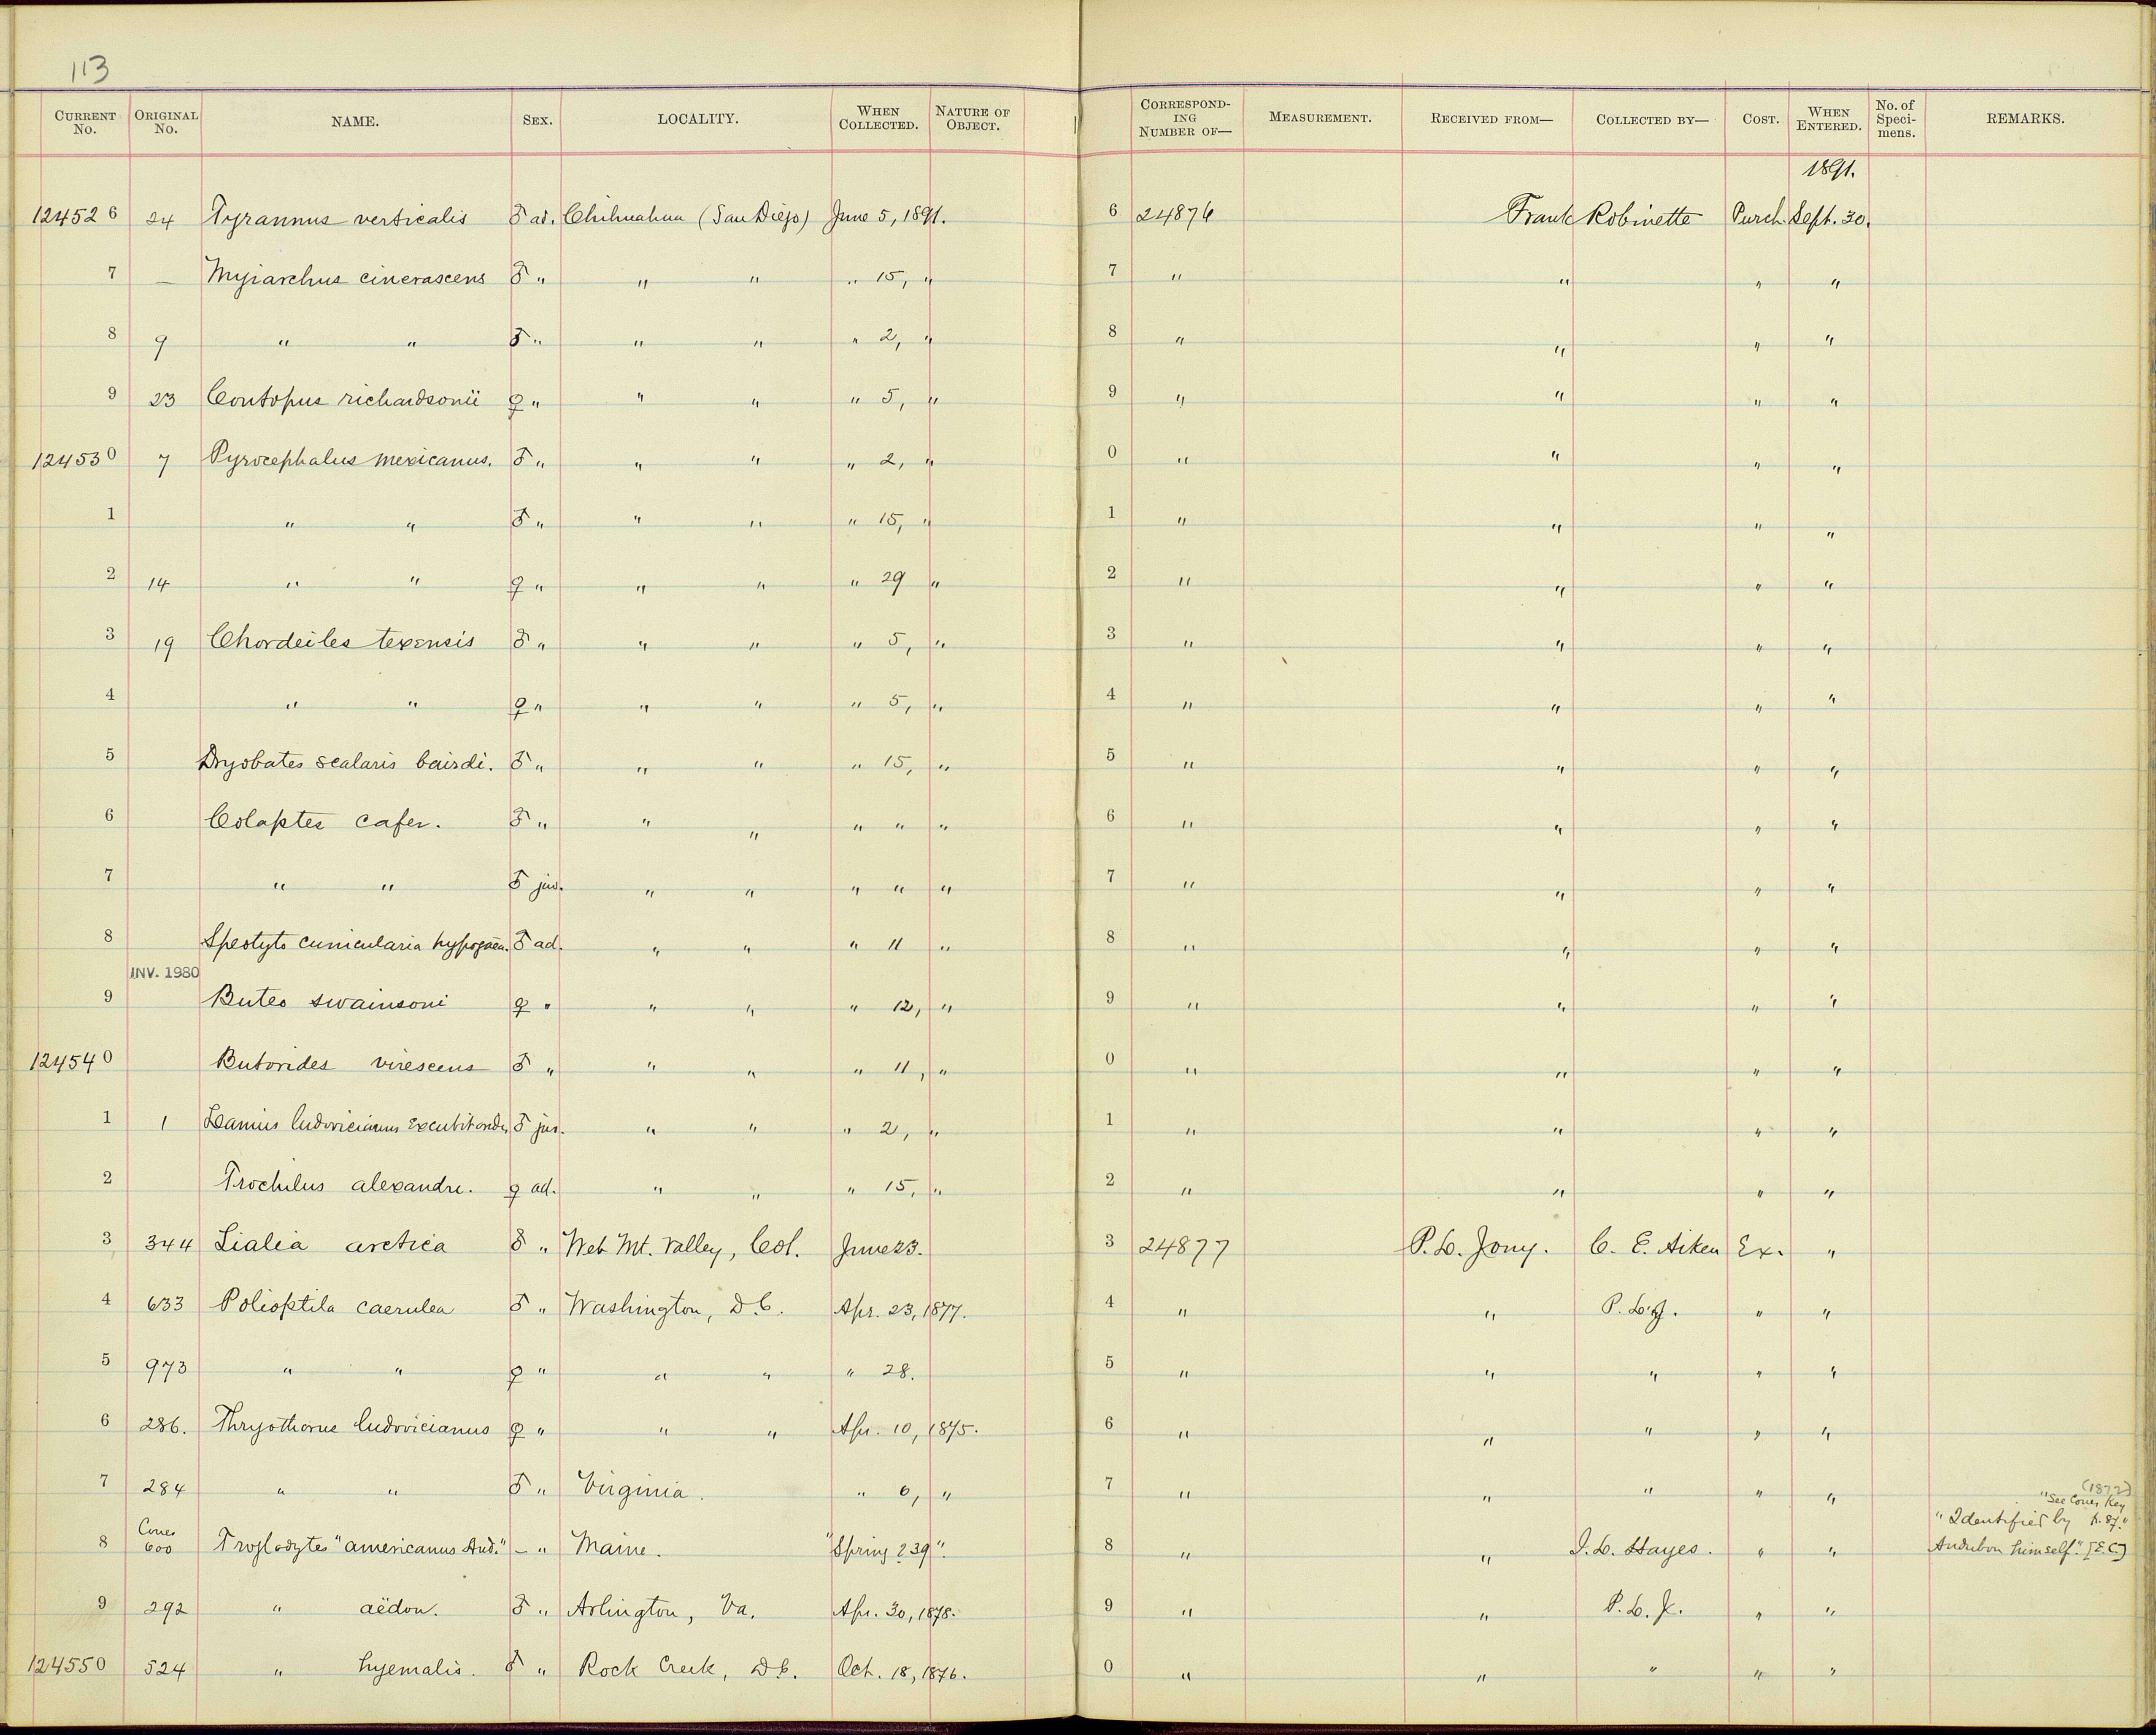 113
CURRENT No. ORIGINAL No. NAME. SEX. LOCALITY. WHEN COLLECTED. NATURE OF OBJECT. CORRESPONDING NUMBER OF— MEASUREMENT. RECEIVED FROM— COLLECTED BY— COST. WHEN ENTERED. No. of Specimens. REMARKS.
1891.
124526 24 Tyrannus verticalis ♂ ad. Chihuahua (San Diego) June 5, 1891. 6 24876 Frank Robinette Purch. Sept. 30.
7 — Myiarchus cinerascens ♂ " " " " 15, " 7 " " " "
8 9 " " ♂ " " " " 2, " 8 " " " "
9 23 Contopus richardsonii ♀ " " " " 5, " 9 " " " "
124530 7 Pyrocephalus mexicanus. ♂ " " " " 2, " 0 " " " "
1 " " ♂ " " " " 15, " 1 " " " "
2 14 " " ♀ " " " " 29 " 2 " " " "
3 19 Chordeiles texensis ♂ " " " " 5, " 3 " " " "
4 " " ♀ " " " " 5, " 4 " " " "
5 Dryobates scalaris bairdi. ♂ " " " " 15, " 5 " " " "
6 Colaptes cafer. ♂ " " " " " " 6 " " " "
7 " " ♂ juv. " " " " " 7 " " " "
8 Speotyto cunicularia hypogaea. ♂ ad. " " " 11 " 8 " " " "
INV. 1980
9 Buteo swainsoni ♀ " " " " 12, " 9 " " " "
124540 Butorides virescens ♂ " " " " 11, " 0 " " " "
1 1 Lanius ludovicianus excubitorides ♂ juv. " " " 2, " 1 " " " "
2 Trochilus alexandri. ♀ ad. " " " 15, " 2 " " " "
3 344 Sialia arctica ♂ " Wet Mt. Valley, Col. June 23. 3 24877 P. L. Jouy. C. E. Aiken Ex. "
4 633 Polioptila caerulea ♂ " Washington, D.C. Apr. 23, 1877. 4 " " P. L. J. " "
5 973 " " ♀ " " " " 28. 5 " " " " "
6 286. Thryothorus ludovicianus ♀ " " " Apr. 10, 1875. 6 " " " " "
7 284 " " ♂ " Virginia. " 6, " 7 " " " " "
8 Coues 600 Troglodytes "americanus Aud." — " Maine. "Spring 239". 8 " " I. L. Hayes. " " "Identified by Audubon himself." [E.C.] "See Coues Key (1872) p. 87."
9 292 " aëdon. ♂ " Arlington, Va. Apr. 30, 1878. 9 " " P. L. J. " "
124550 524 " hyemalis. ♂ " Rock Creek, D.C. Oct. 18, 1876. 0 " " " " "